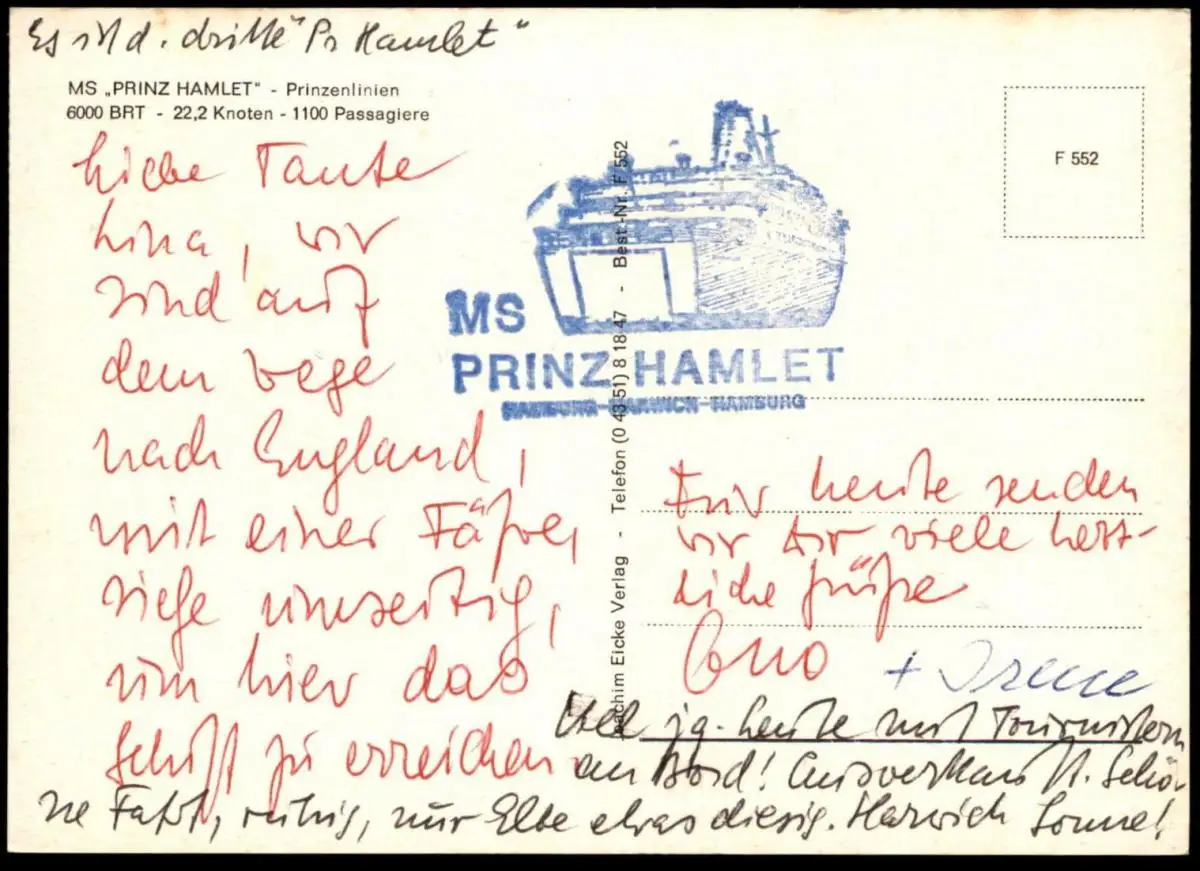 Es ist d. dritte "Pr Hamlet"
MS „PRINZ HAMLET" - Prinzenlinien
6000 BRT - 22,2 Knoten - 1100 Passagiere
F 552
Liebe Tante
Lina, wir
sind auf
dem Wege
nach England,
mit einer Fähre,
siehe umseitig,
um hier das
Schiff zu erreichen
MS
PRINZ HAMLET
HAMBURG-HARWICH-HAMBURG
Joachim Eicke Verlag - Telefon (0 43 51) 8 18 47 - Best.-Nr. F 552
Für heute senden
wir Dir viele herz-
liche Grüße
+ Irene
jg. heute mit Tournistern
an Bord! Ausverkauft. Schö-
ne Fahrt, ruhig, nur Elbe etwas diesig. Harwich Sonne!